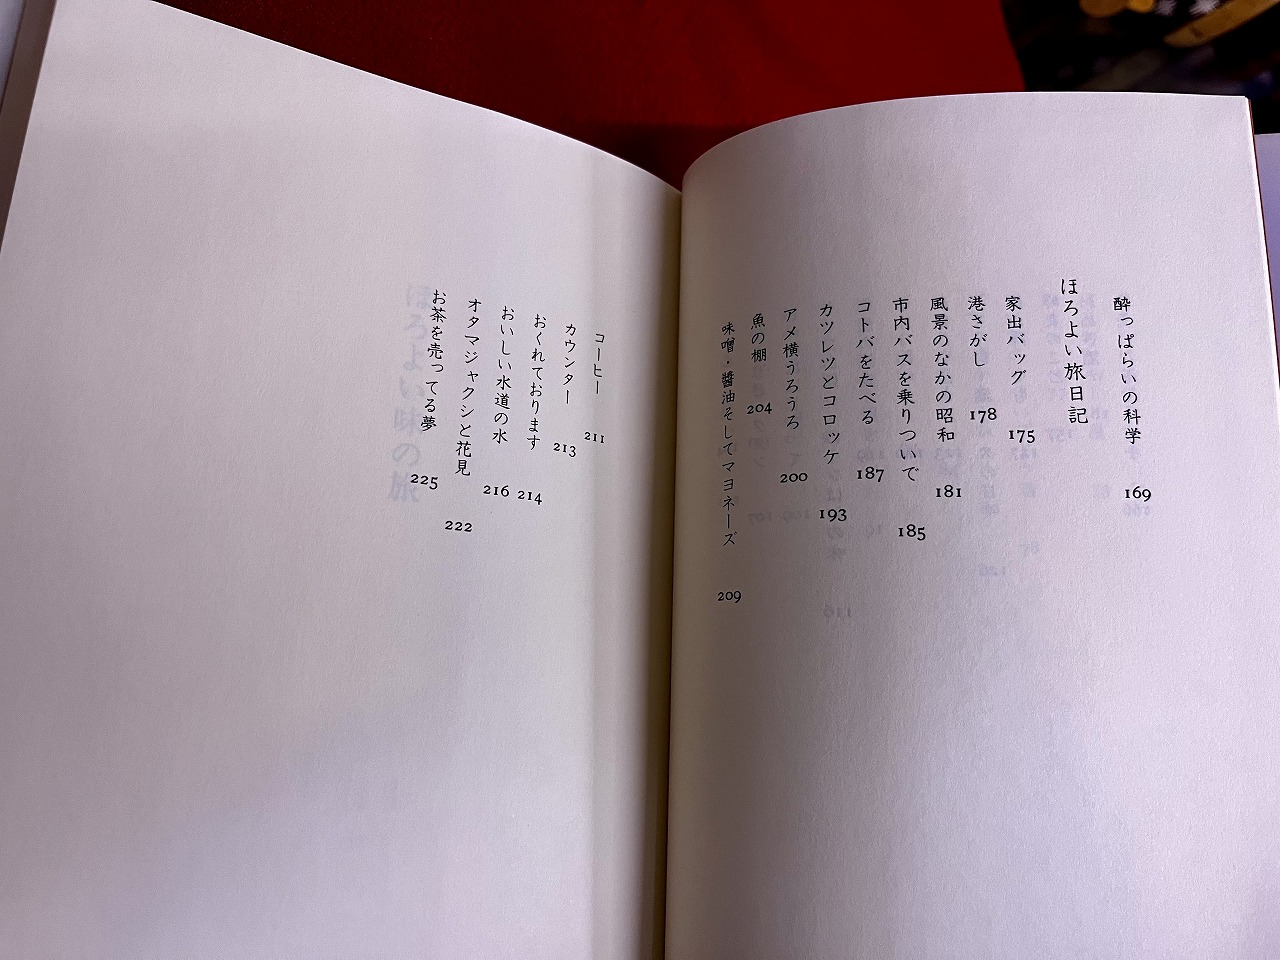 酔っぱらいの科学 169
ほろよい旅日記
家出バッグ 175
港さがし 178
風景のなかの昭和 181
市内バスを乗りついで 185
コトバをたべる 187
カツレツとコロッケ 193
アメ横うろうろ 200
魚の棚 204
味噌・醬油そしてマヨネーズ 209
コーヒー 211
カウンター 213
おくれております 214
おいしい水道の水 216
オタマジャクシと花見 222
お茶を売ってる夢 225
ほろよい味の旅